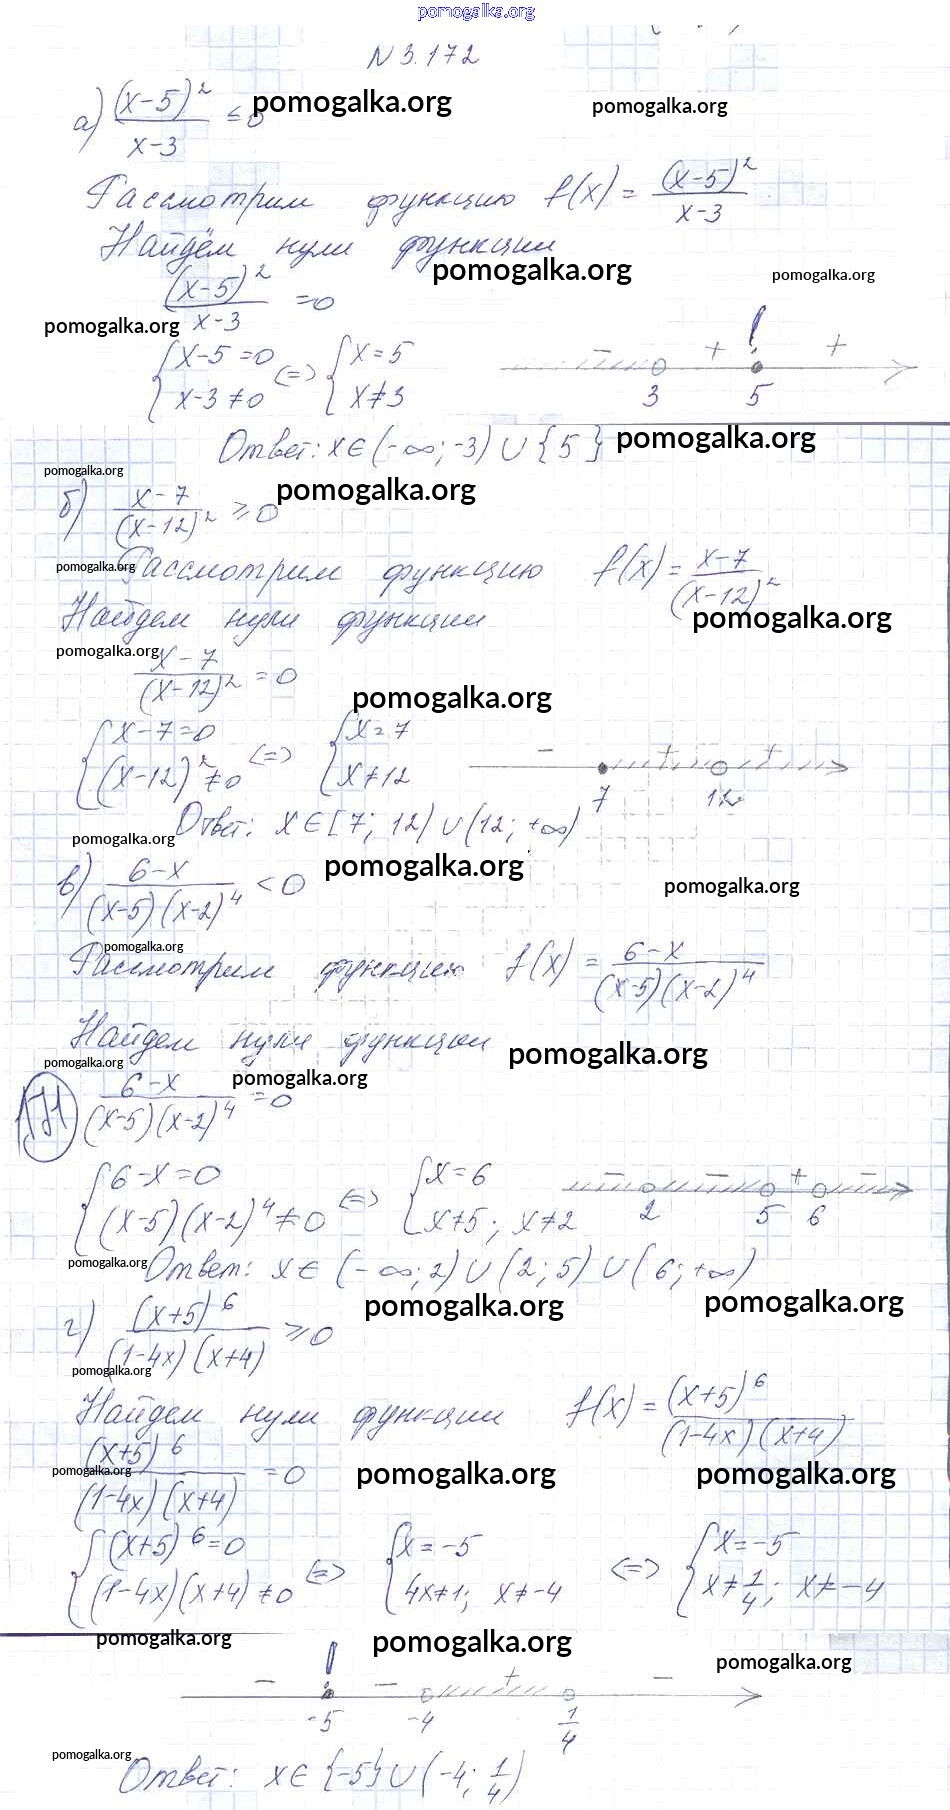 pomogalka.org
N 3.172
а) (x-5)² / x-3 ≤ 0 pomogalka.org pomogalka.org
Рассмотрим функцию f(x) = (x-5)² / x-3
Найдём нули функции
pomogalka.org pomogalka.org
(x-5)² / x-3 = 0
pomogalka.org
{ x-5=0 <=> { x=5
x-3≠0 x≠3
- + ! +
3 5
Ответ: x∈(-∞; -3) ∪ {5} pomogalka.org
pomogalka.org
б) x-7 / (x-12)² ≥ 0 pomogalka.org
pomogalka.org Рассмотрим функцию f(x) = x-7 / (x-12)²
Найдем нули функции pomogalka.org
pomogalka.org
x-7 / (x-12)² = 0
pomogalka.org
{ x-7=0 <=> { x=7
(x-12)²≠0 x≠12
- + +
7 12
Ответ: x∈[7; 12) ∪ (12; +∞)
pomogalka.org
в) 6-x / (x-5)(x-2)⁴ < 0 pomogalka.org pomogalka.org
pomogalka.org
Рассмотрим функцию f(x) = 6-x / (x-5)(x-2)⁴
Найдем нули функции pomogalka.org
pomogalka.org pomogalka.org
171
6-x / (x-5)(x-2)⁴ = 0
{ 6-x=0 <=> { x=6
(x-5)(x-2)⁴≠0 x≠5; x≠2
- - + -
2 5 6
pomogalka.org Ответ: x∈ (-∞; 2) ∪ (2; 5) ∪ (6; +∞)
pomogalka.org pomogalka.org
г) (x+5)⁶ / (1-4x)(x+4) ≥ 0
pomogalka.org
Найдем нули функции f(x) = (x+5)⁶ / (1-4x)(x+4)
(x+5)⁶ / (1-4x)(x+4) = 0
pomogalka.org pomogalka.org pomogalka.org
{ (x+5)⁶=0 <=> { x=-5 <=> { x=-5
(1-4x)(x+4)≠0 4x≠1; x≠-4 x≠1/4; x≠-4
pomogalka.org pomogalka.org pomogalka.org
- ! - + -
-5 -4 1/4
pomogalka.org
Ответ: x∈ {-5} ∪ (-4; 1/4)